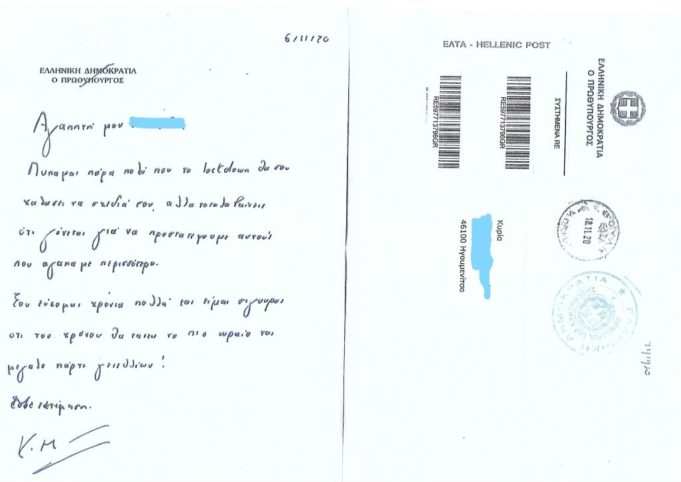 6/11/20
ΕΛΛΗΝΙΚΗ ΔΗΜΟΚΡΑΤΙΑ
Ο ΠΡΩΘΥΠΟΥΡΓΟΣ
Αγαπητή μου
Λυπαμαι πάρα πολύ που το lockdown θα σου
χαλάσει τα σχέδιά σου, αλλα καταλαβαίνεις
ότι γίνεται για να προστατέψουμε αυτούς
που αγαπαμε περισσότερο.
Σου εύχομαι χρόνια πολλά και είμαι σίγουρος
οτι του χρόνου θα κανεις το πιο ωραίο και
μεγάλο πάρτι γενεθλίων!
Κ.Μ
ΕΛΤΑ - HELLENIC POST
RE597713795GR
RE597713795GR
ΣΥΣΤΗΜΕΝΑ RE
ΕΛΛΗΝΙΚΗ ΔΗΜΟΚΡΑΤΙΑ
Ο ΠΡΩΘΥΠΟΥΡΓΟΣ
Κυρία
46100 Ηγουμενίτσα
18.11.20